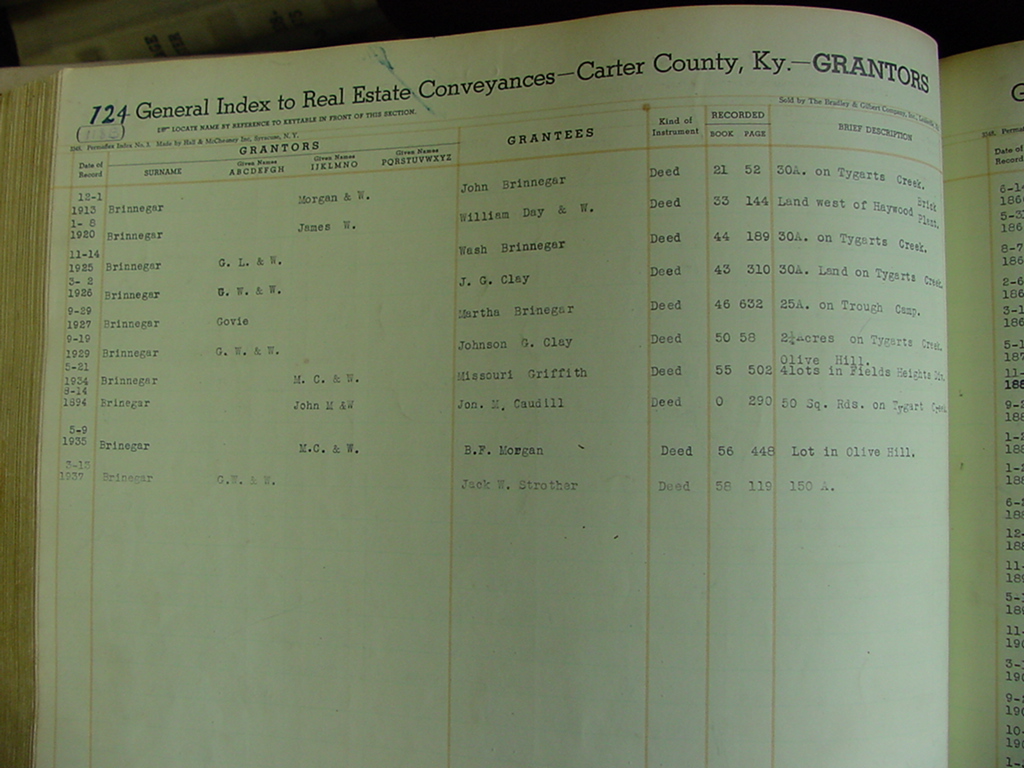 124 General Index to Real Estate Conveyances—Carter County, Ky.—GRANTORS
LOCATE NAME BY REFERENCE TO KEYTABLE IN FRONT OF THIS SECTION.
Sold by The Bradley & Gilbert Company, Inc.,
Date of Record
GRANTORS
SURNAME
Given Names ABCDEFGH
Given Names IJKLMNO
Given Names PQRSTUVWXYZ
GRANTEES
Kind of Instrument
RECORDED
BOOK PAGE
BRIEF DESCRIPTION
12-1 1913 Brinnegar Morgan & W. John Brinnegar Deed 21 52 30A. on Tygarts Creek.
1- 8 1920 Brinnegar James W. William Day & W. Deed 33 144 Land west of Haywood Brick Plant.
11-14 1925 Brinnegar G. L. & W. Wash Brinnegar Deed 44 189 30A. on Tygarts Creek.
3- 2 1926 Brinnegar G. W. & W. J. G. Clay Deed 43 310 30A. Land on Tygarts Creek.
9-29 1927 Brinnegar Govie Martha Brinegar Deed 46 632 25A. on Trough Camp.
9-19 1929 Brinnegar G. W. & W. Johnson G. Clay Deed 50 58 2¼acres on Tygarts Creek.
5-21 1934 Brinnegar M. C. & W. Missouri Griffith Deed 55 502 Olive Hill. 4lots in Fields Heights
8-14 1894 Brinegar John M &W Jon. M. Caudill Deed O 290 50 Sq. Rds. on Tygart Creek
5-9 1935 Brinegar M.C. & W. B.F. Morgan Deed 56 448 Lot in Olive Hill.
3-13 1937 Brinegar G.W. & W. Jack W. Strother Deed 58 119 150 A.